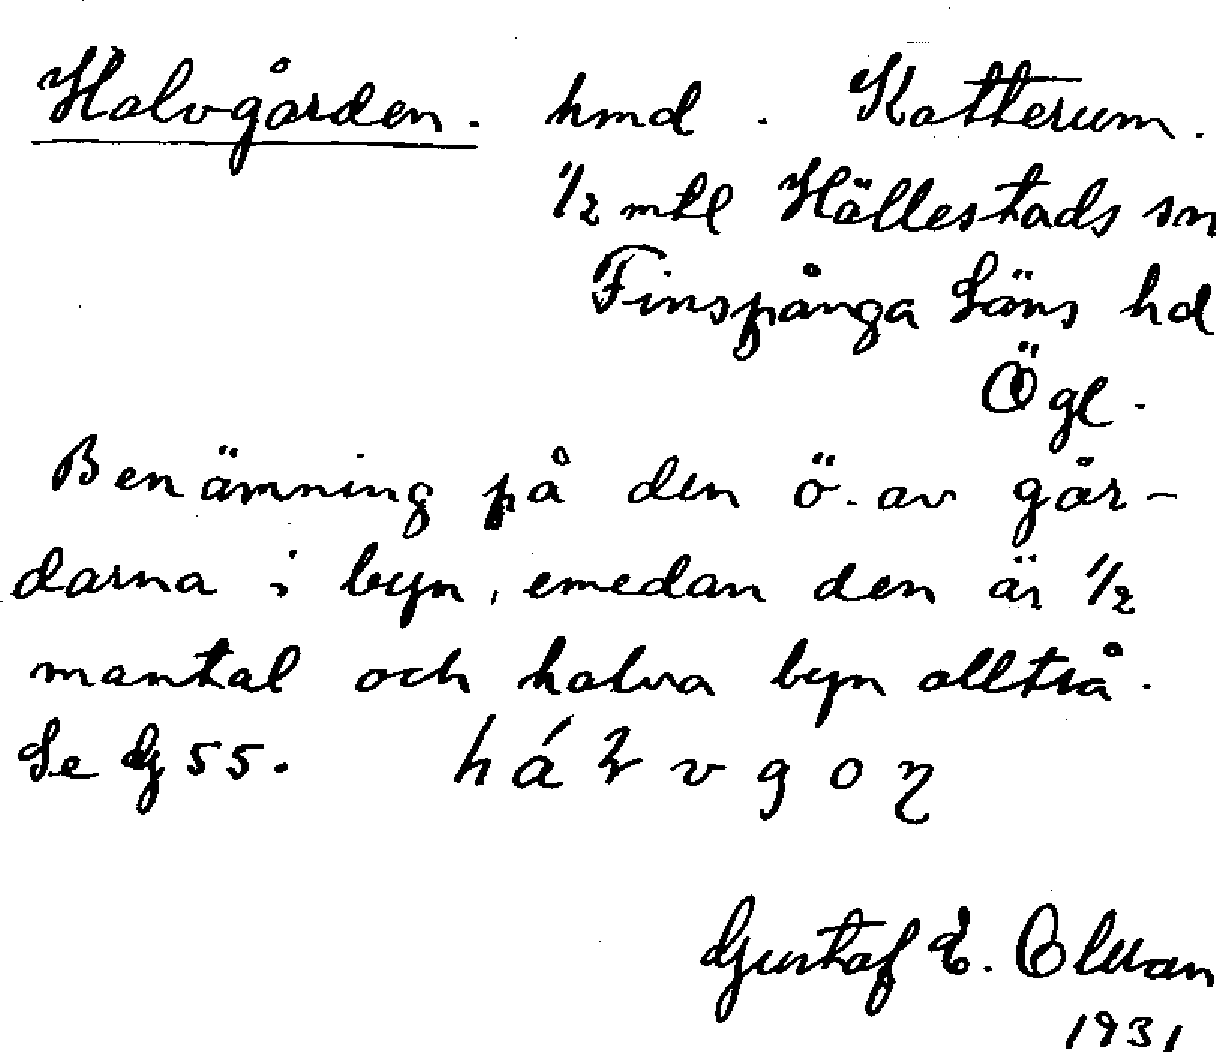 Halvgården. hmd. Katterum.
1/2 mtl Hällestads sn
Finspånga Läns hd
Ögl.
Benämning på den ö. av går-
darna i byn, emedan den är 1/2
mantal och halva byn alltså.
Se G 55.
Gustaf E. Olman
1931